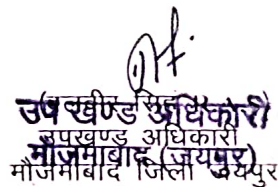 उप खण्ड अधिकारी
उपखण्ड अधिकारी
मौजमाबाद (जयपुर)
मौजमाबाद जिला जयपुर